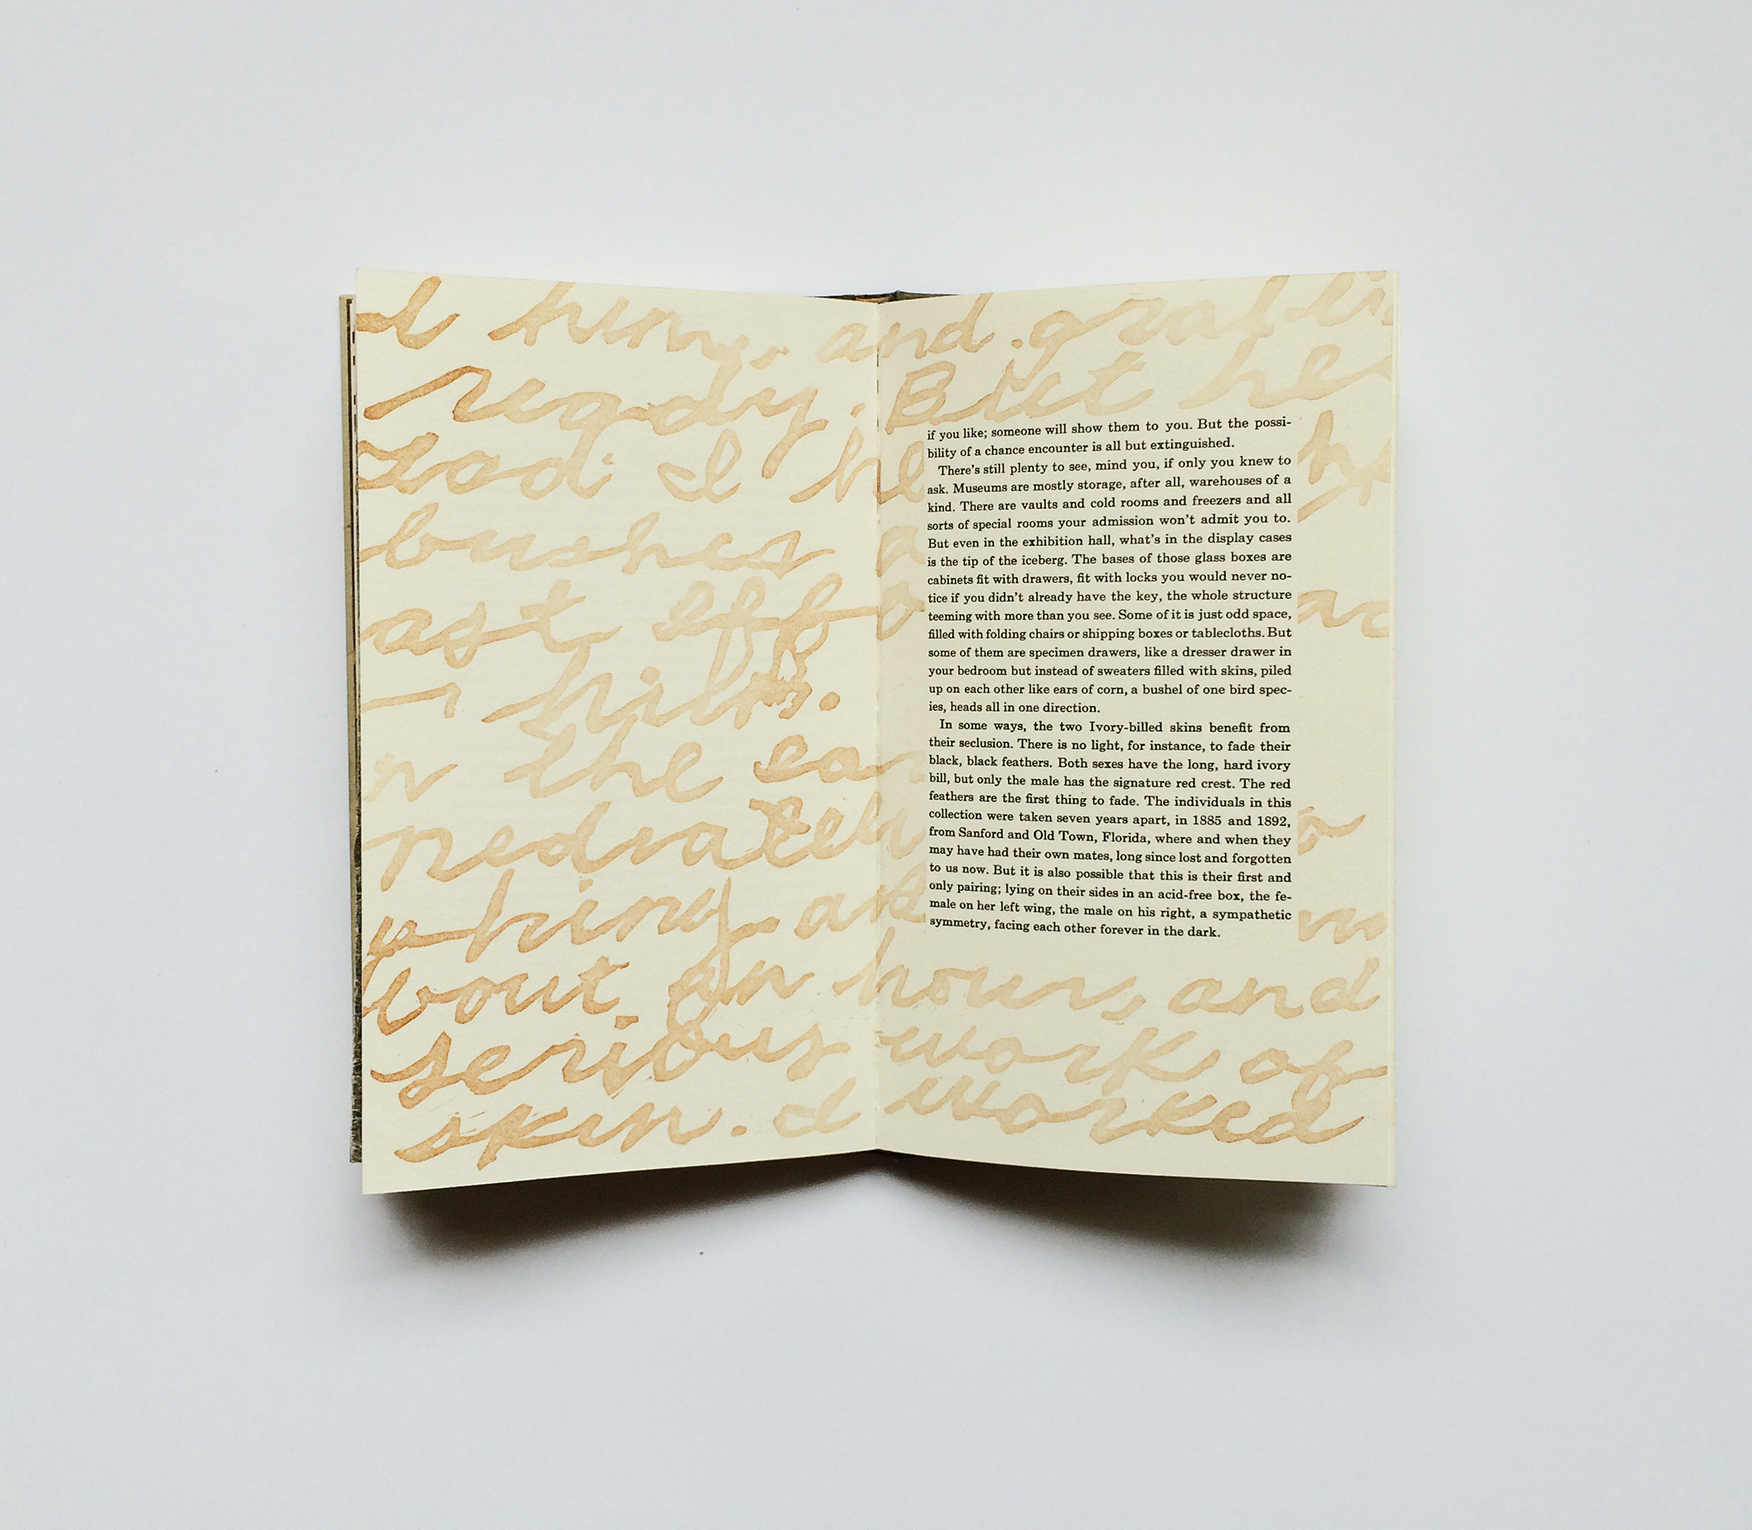 I him, and grabbi
ready. But he
bushes
ast eff
hills.
n the ea
mediatel
hing. as
bout an hour, and
serious work of
skin. I worked
if you like; someone will show them to you. But the possi-
bility of a chance encounter is all but extinguished.
There's still plenty to see, mind you, if only you knew to
ask. Museums are mostly storage, after all, warehouses of a
kind. There are vaults and cold rooms and freezers and all
sorts of special rooms your admission won't admit you to.
But even in the exhibition hall, what's in the display cases
is the tip of the iceberg. The bases of those glass boxes are
cabinets fit with drawers, fit with locks you would never no-
tice if you didn't already have the key, the whole structure
teeming with more than you see. Some of it is just odd space,
filled with folding chairs or shipping boxes or tablecloths. But
some of them are specimen drawers, like a dresser drawer in
your bedroom but instead of sweaters filled with skins, piled
up on each other like ears of corn, a bushel of one bird spec-
ies, heads all in one direction.
In some ways, the two Ivory-billed skins benefit from
their seclusion. There is no light, for instance, to fade their
black, black feathers. Both sexes have the long, hard ivory
bill, but only the male has the signature red crest. The red
feathers are the first thing to fade. The individuals in this
collection were taken seven years apart, in 1885 and 1892,
from Sanford and Old Town, Florida, where and when they
may have had their own mates, long since lost and forgotten
to us now. But it is also possible that this is their first and
only pairing; lying on their sides in an acid-free box, the fe-
male on her left wing, the male on his right, a sympathetic
symmetry, facing each other forever in the dark.